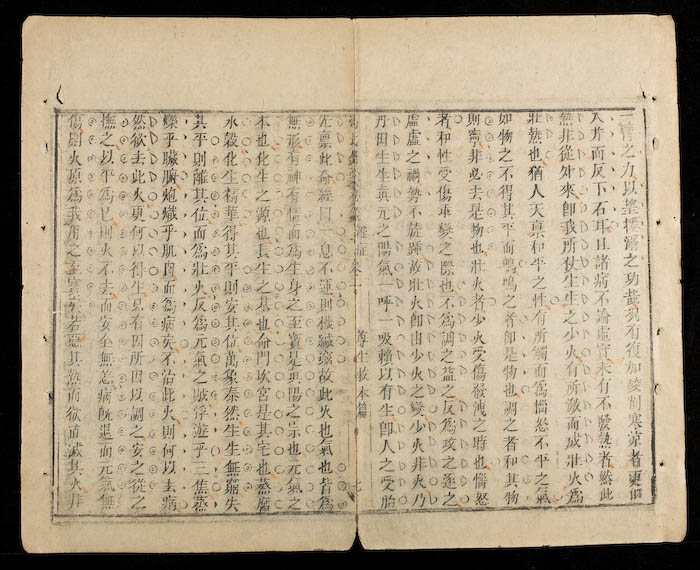 一情之力以望撲滅之功哉況有復加峻削寒涼者更如
入井而反下石耳且諸病不論虛實未有不發熱者然此
熱非從外來卽我所仗生生之少火有所激而成壯火爲
壯熱也猶人天禀和平之性有所觸而爲惱怒不平之氣
如物之不得其平而鳴鳴之者卽是物也調之者和其物
則寧非必去是物也壯火者少火受傷發洩之時也惱怒
者和性受傷乖變之際也不爲調之益之反爲攻之逐之
虛虛之禍勢不旋踵故壯火卽由少火之變少火非火乃
丹田生生眞元之陽氣一呼一吸賴以有生卽人之受胎
雜症 尊生救本篇 七
先禀此命經曰一息不運則機緘窮故此火也氣也皆爲
無形有神有情而爲生身之至寶是眞陽之宗也元氣之
本也化生之源也長生之基也命門坎宮是其宅也蒸腐
水穀化生精華得其平則安其位萬象泰然生生無窮失
其平則離其位而爲壯火反爲元氣之賊浮遊乎三焦蒸
爍乎臟腑炮熾乎肌肉而爲病矣不治此火則何以去病
然欲去此火更何以得生是有因所因以調之安之從之
撫之以平爲已則火不去而安坐無恙病旣退而元氣無
傷則火原爲我用之至寶矣若惡其熱而欲直滅其火非